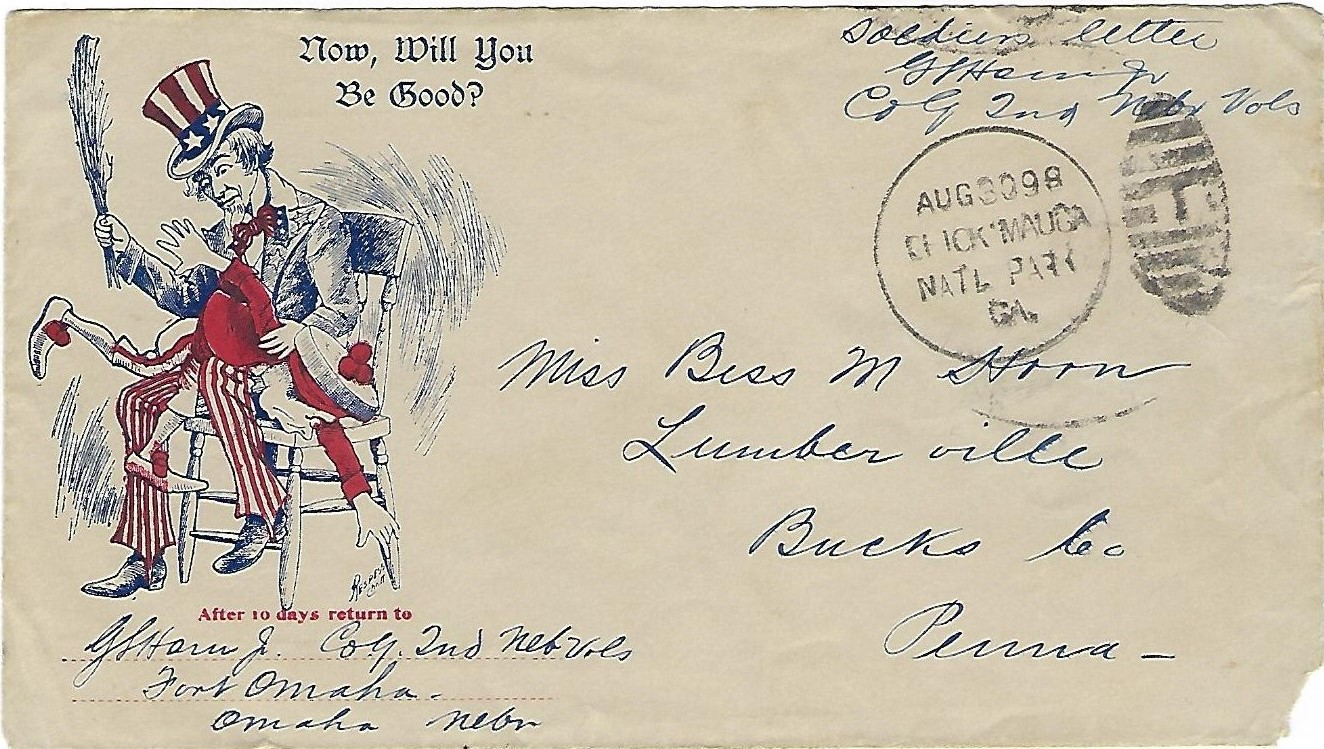 Now, Will You
Be Good?
Soldiers letter
Co G 2nd Nebr Vols
AUG 30 98
CHICK'MAUGA
NAT'L PARK
GA.
Miss Bess M
Lumberville
Bucks Co
Penna -
After 10 days return to
Jr. Co G. 2nd Neb Vols
Fort Omaha -
Omaha Nebr